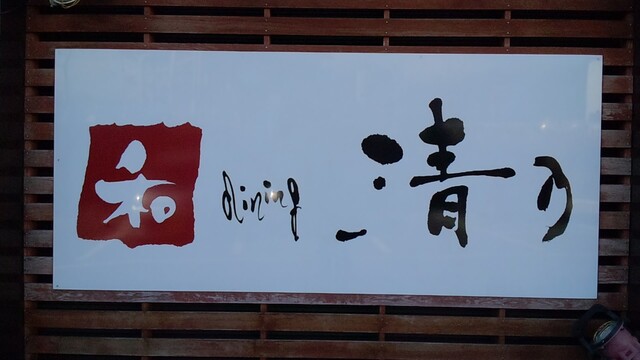 和 dining 清乃